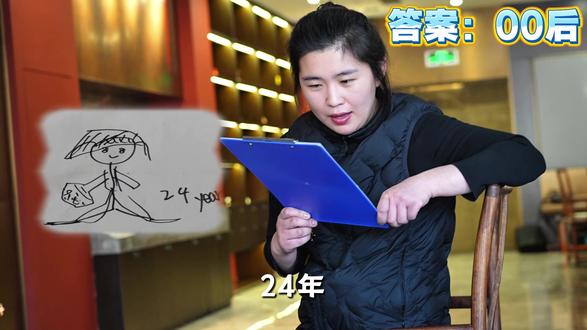 答案：00后
24 year
24年